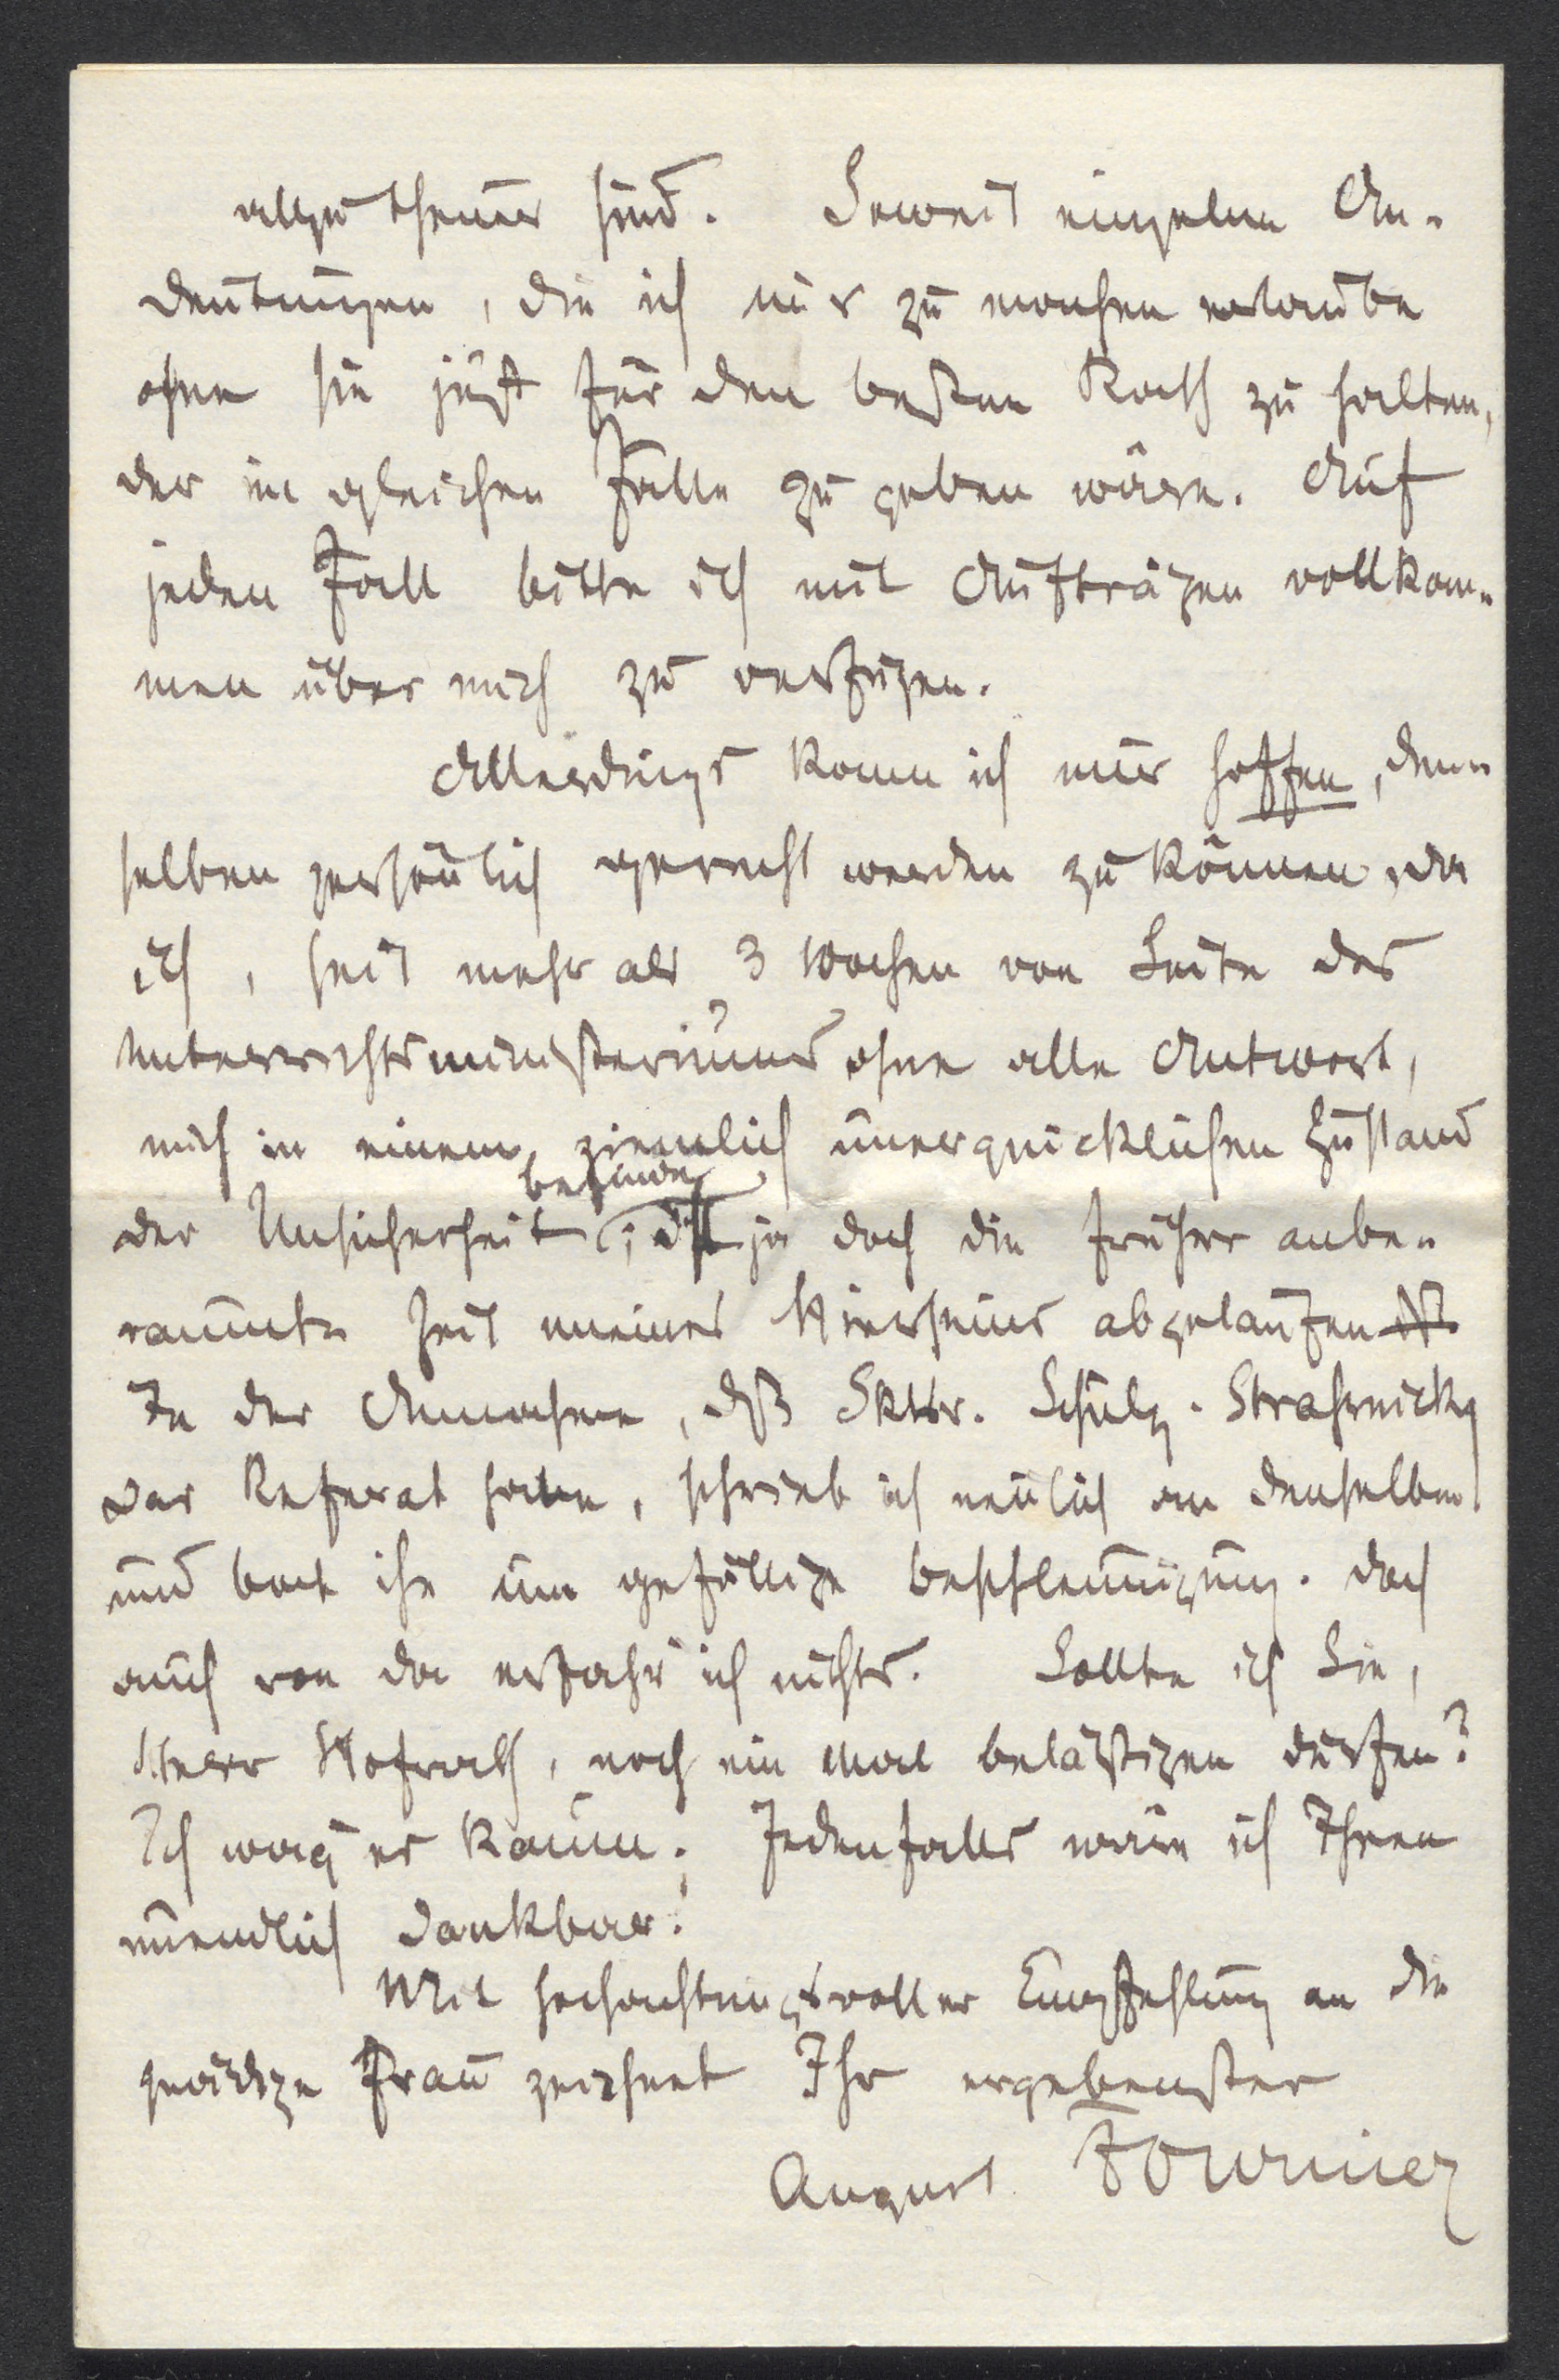 allzu theuer sind. Soweit einzelne An-
deutungen, die ich mir zu machen erlaube
ohne sie just für den besten Rath zu halten,
der im gleichen Falle zu geben wäre. Auf
jeden Fall bitte ich mit Aufträgen vollkom-
men über mich zu verfügen.
Allerdings kann ich nur hoffen, den-
selben persönlich gerecht werden zu können, da
ich, seit mehr als 3 Wochen von Seite des
Unterrichtsministeriums ohne alle Antwort,
mich in einem ziemlich unerquicklichen Zustand
befinde
der Unsicherheit; ist ja doch die früher anbe-
raumte Zeit meines Hierseins abgelaufen.
In der Annahme, dß Sktär. Schulz-Strasznicky
das Referat habe, schrieb ich neulich an denselben
und bat ihn um gefällige Beschleunigung. Doch
auch von da erfahr' ich nichts. Sollte ich Sie,
Herr Hofrath, noch ein Mal belästigen dürfen?
Ich wag' es kaum. Jedenfalls wäre ich Ihnen
unendlich dankbar.
Mit hochachtungsvoller Empfehlung an die
gnädige Frau zeichnet Ihr ergebenster
August Fournier